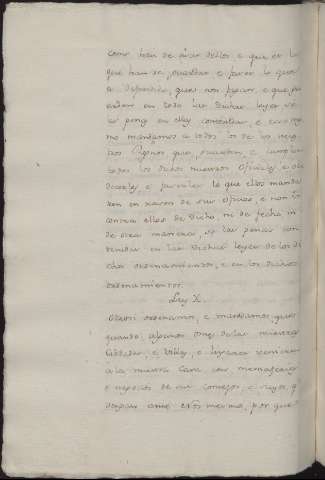 como han de usar dellos, e que es lo
que han de guardar e facer lo que
es defendido, que non fagan, e que
en todo las dichas leyes so
las penas en ellas contenidas, e
mandamos a todos los de los
Reynos que guarden, e
todos los dichos nuestros Oficiales
e fagan lo que ellos manda
ren en razon de sus oficios, e non
contra ellos de dicho, ni de fecho ni
de otra manera, so las penas con
tenidas en las dichas leyes de los di
chos ordenamientos, e en los dichos
ordenamientos.
Ley X.
Otrosi ordenamos, e mandamos, que
quando algunos omes de las nuestras
Cibdades, e Villas, e lugares vinieren
a la nuestra Casa con mensajerias
e negocios de sus Concejos e suyos, q
vengan ante Nos mesmo, por que